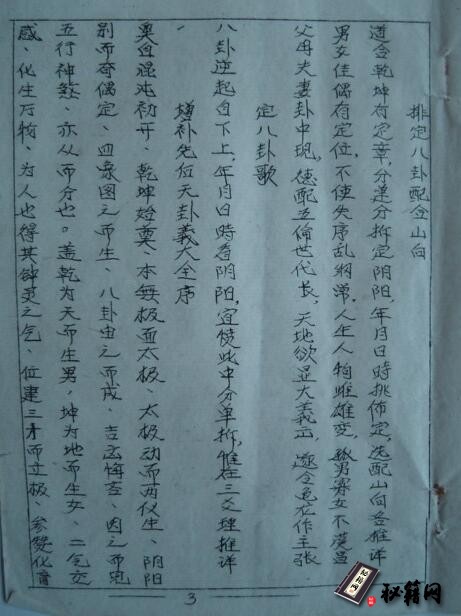 排定八卦配合山向
道合乾坤有定章，分逆分拆定阴阳，年月日時排佈定，选配山向各推详
男女佳偶存定位，不使失序乱纲常，人生人物雌雄变，男寡女不
父母夫妻卦中现，德配五倫世代長，天地欲显大義正，遂令色作主張
定八卦歌
八卦逆起自下上，年月日時看阴阳，宜此中分单拆，惟在三爻理推详
增补先位天卦義大全序
粤自混沌初开、乾坤始奠、本無极而太极、太极动而两仪生、阴阳
别而奇偶定、四象因之而生、八卦由之而成、吉凶悔吝、因之而見
五行神煞、亦从而分也。盖乾为天而生男，坤为地而生女、二气交
感、化生万物、为人也得其钟灵之气、位建三才而立极、参赞化育
3
秘籍网